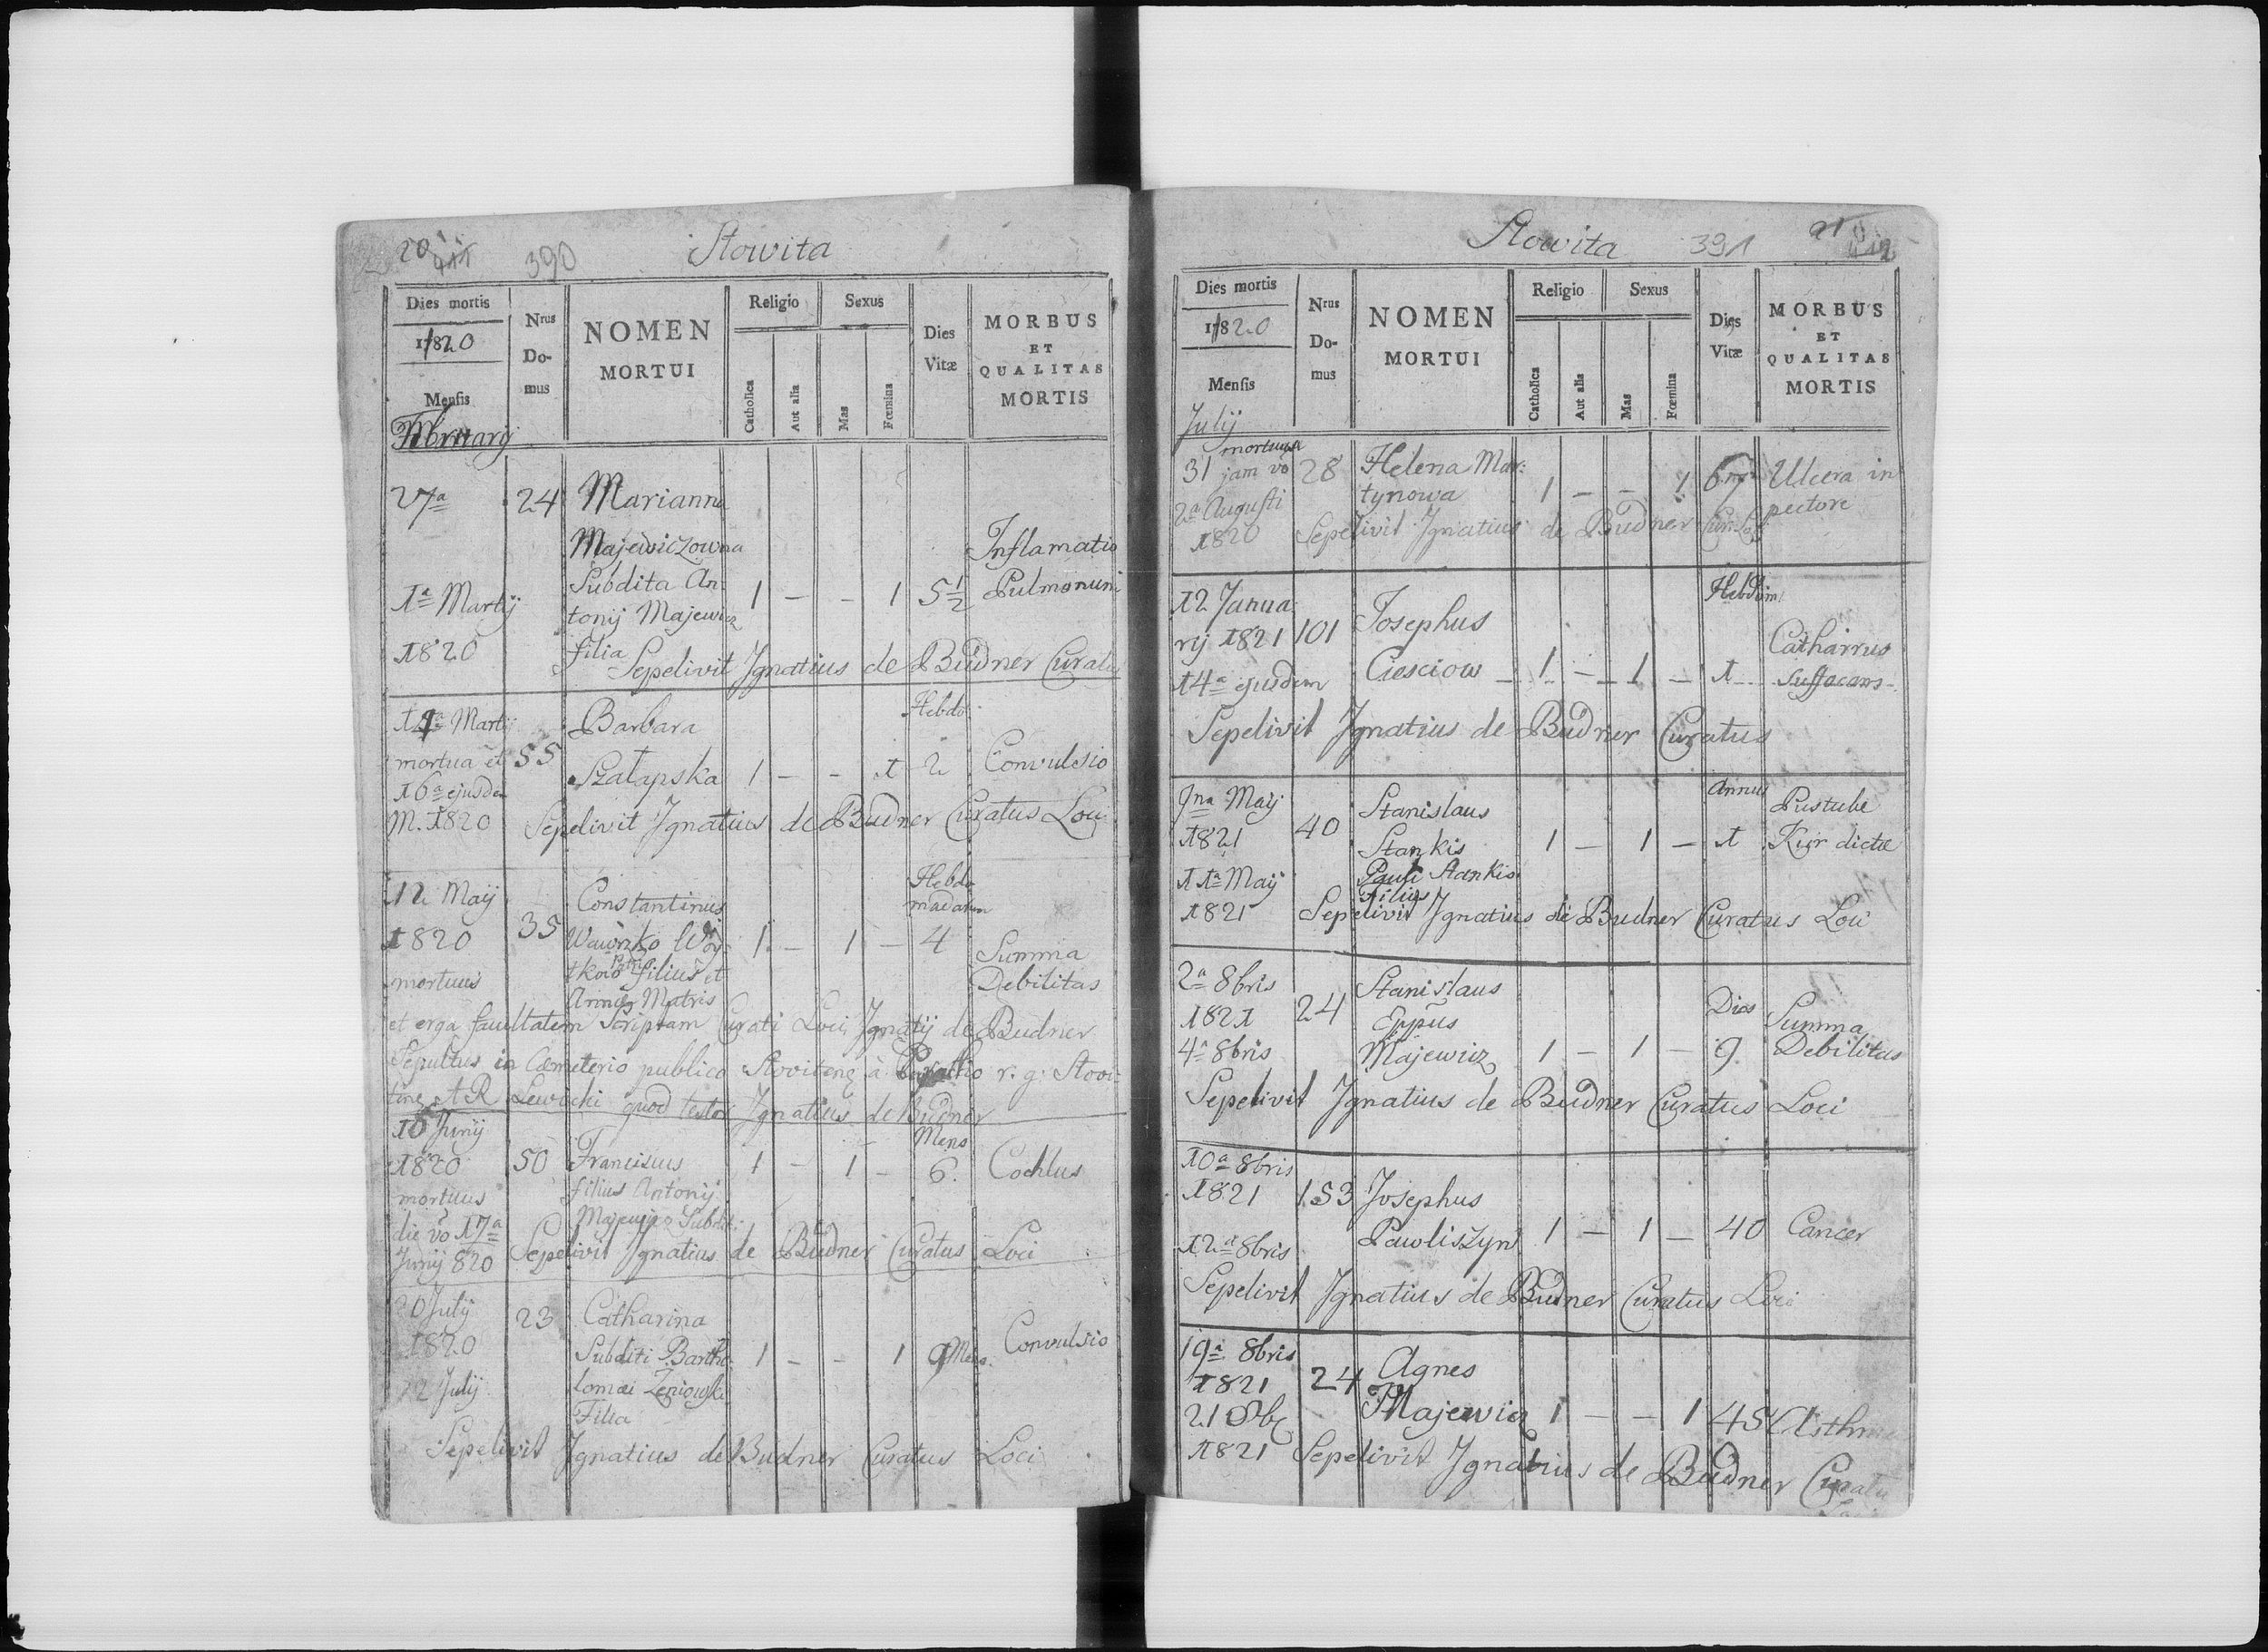 20 390 Stowita
Dies mortis
1820
Mensis
Februarij
Nrus Do-mus
NOMEN MORTUI
Religio
Catholica
Aut alia
Sexus
Mas
Fœmina
Dies Vitæ
MORBUS ET QUALITAS MORTIS
27a 24 Marianna
Majewiczowna Inflamatio
1a Martij Subdita An: 1 – – 1 5 1/2 Pulmonum
tonij Majewicz
1820 filia Sepelivit Ignatius de Budner Curatus
Martij Barbara Hebdo:
mortua et 55 1 – – 1 2 Convulsio
16a ejusdem
M. 1820 Sepelivit Ignatius de Budner Curatus Loci
12 Maij Constantinus Hebdo
madarum
1820 35 Wawrzko Woy: 1 – 1 – 4 Summa
mortuus tkow Patris filius et Debilitas
Annæ Matris
et erga facultatem Scriptam Curati Loci Ignatij de Budner
Sepultus in Cæmeterio publico à r. g. Stovi-
A R Lewicki quod testor Ignatius de Budner
16 Junij Mens
1820 50 Franciscus 1 – 1 – 6.
mortuus filius Antonij
die vo 17a Majewicz Subdit:
Junij 820 Sepelivit Ignatius de Budner Curatus Loci
20 July 23 Catharina
1820 Subditi Bartho 1 – – 1 9 Mens. Convulsio
22 July lomæi
Filia
Sepelivit Ignatius de Budner Curatus Loci
Stowita 391 21
Dies mortis
1820
Mensis
Julij
Nrus Do-mus
NOMEN MORTUI
Religio
Catholica
Aut alia
Sexus
Mas
Fœmina
Dies Vitæ
MORBUS ET QUALITAS MORTIS
mortua
31 jam vo 28 Helena Mar: Ulcera in
2a Augusti tynowa 1 – – 1 pectore
1820 Sepelivit Ignatius de Budner Cur: Loci
12 Janua: Hebdom:
rij 1821 101 Josephus Catharrus
14a ejusdem Ciesciow – 1 – – 1 – 1 Suffocans
Sepelivit Ignatius de Budner Curatus
9na Maij Stanislaus Annus Pustulæ
1821 40 Stankis 1 – 1 – 1 Kür dictæ
11a Maij Pauli Stankis
Filius
1821 Sepelivit Ignatius de Budner Curatus Loci
2a 8bris Stanislaus
1821 24 Eppus Dies Summa
4a 8bris Majewicz 1 – 1 – 9 Debilitas
Sepelivit Ignatius de Budner Curatus Loci
10a 8bris
1821 153 Josephus
12a 8bris Pawliszyn 1 – 1 – 40 Cancer
Sepelivit Ignatius de Budner Curatus Loci
19a 8bris Agnes
1821 24 Majewicz 1 – – 1 45 Asthma
21 8b
1821 Sepelivit Ignatius de Budner Curatus